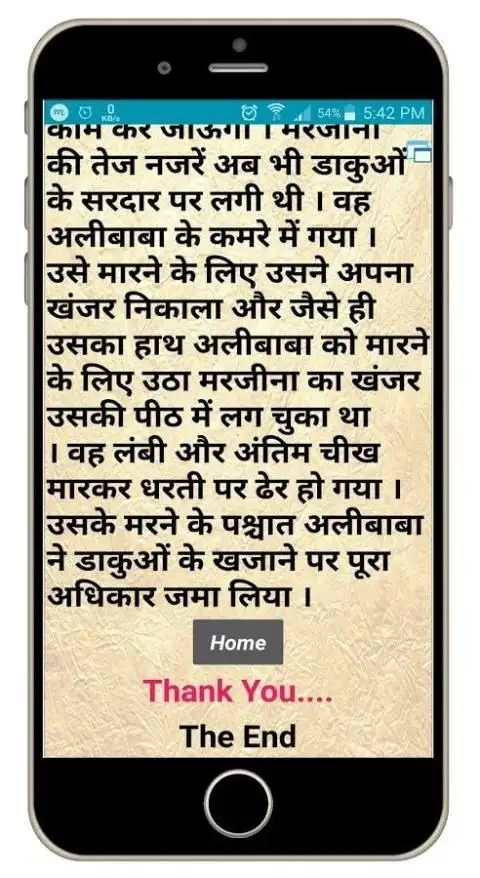 0
KB/s
54% 5:42 PM
काम कर जाऊंगा । मरजीना
की तेज नजरें अब भी डाकुओं
के सरदार पर लगी थी । वह
अलीबाबा के कमरे में गया ।
उसे मारने के लिए उसने अपना
खंजर निकाला और जैसे ही
उसका हाथ अलीबाबा को मारने
के लिए उठा मरजीना का खंजर
उसकी पीठ में लग चुका था
। वह लंबी और अंतिम चीख
मारकर धरती पर ढेर हो गया ।
उसके मरने के पश्चात अलीबाबा
ने डाकुओं के खजाने पर पूरा
अधिकार जमा लिया ।
Home
Thank You....
The End